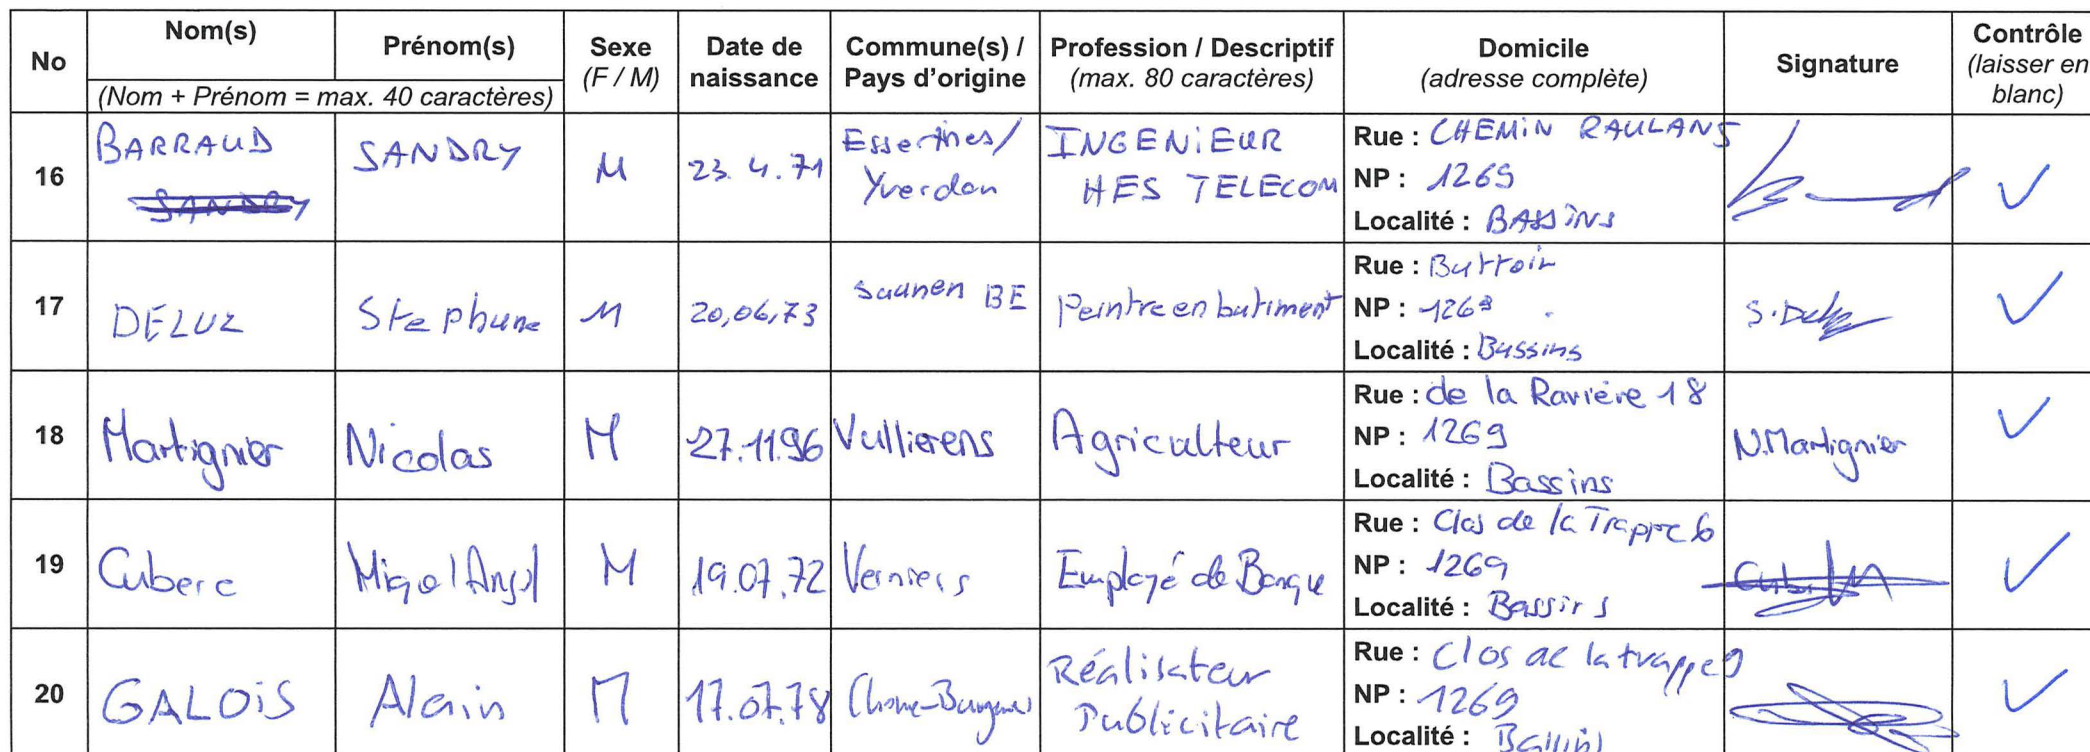 No Nom(s) Prénom(s) Sexe (F / M) Date de naissance Commune(s) / Pays d'origine Profession / Descriptif (max. 80 caractères) Domicile (adresse complète) Signature Contrôle (laisser en blanc)
(Nom + Prénom = max. 40 caractères)
16 BARRAUD SANDRY M 23.4.71 Essertines/ Yverdon INGENiEUR HES TELECOM
Rue : CHEMIN RAULANS
NP : 1269
Localité : BASSiNS
17 DELUZ Stephane M 20,06,73 Saanen BE Peintre en batiment
Rue :
NP : 1269
Localité : Bassins
S. Deluz
18 Martignier Nicolas M 27.11.96 Vullierens Agriculteur
Rue : de la Ravière 18
NP : 1269
Localité : Bassins
N.Martignier
19 M 19.07.72 Employé de Banque
Rue : Clos de la Trappe 6
NP : 1269
Localité : Bassins
20 GALOiS Alain M 17.07.78 Réalisateur Publicitaire
Rue : Clos de la trappe 9
NP : 1269
Localité : Bassins